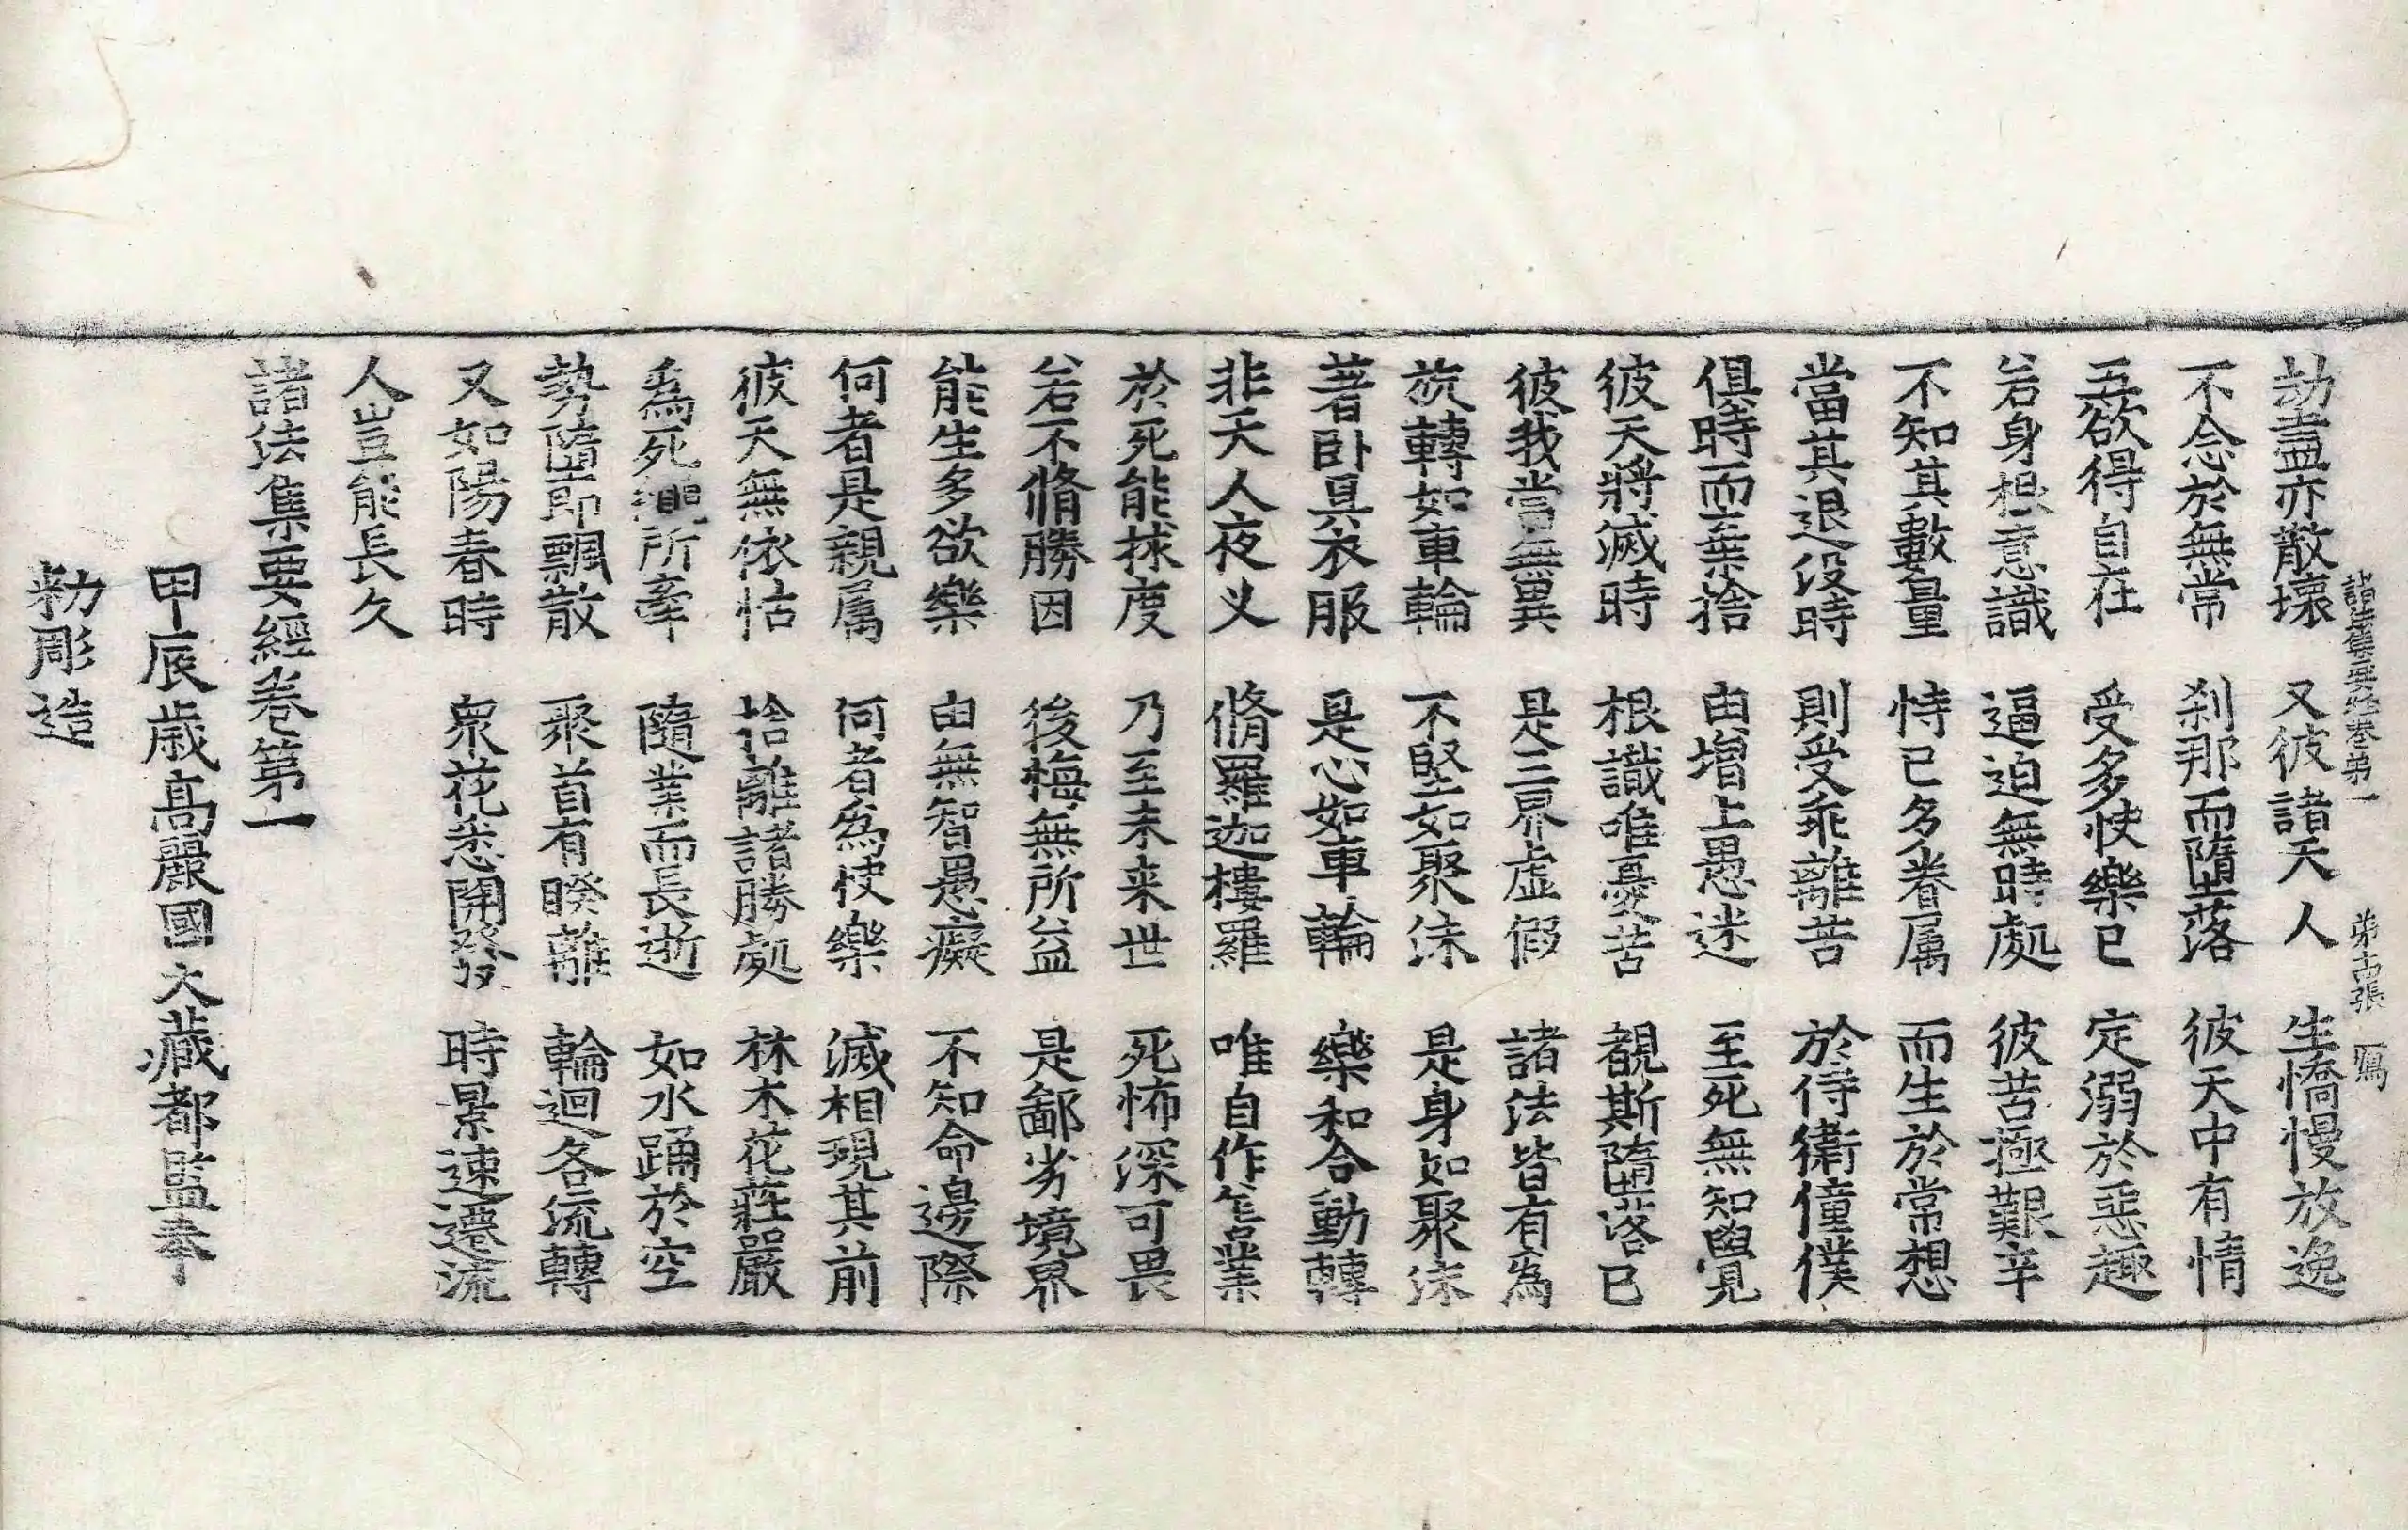 諸法集要經卷第一 第十張 寫
劫盡亦散壞 又彼諸天人 生憍慢放逸
不念於無常 刹那而墮落 彼天中有情
五欲得自在 受多快樂已 定溺於惡趣
若身根意識 逼迫無時處 彼苦極艱辛
不知其數量 恃已多眷属 而生於常想
當其退没時 則受乖離苦 於侍衛僮僕
俱時而棄捨 由增上愚迷 至死無知覺
彼天將滅時 根識唯憂苦 覩斯墮落已
彼我當無異 是三界虛假 諸法皆有為
旋轉如車輪 不堅如聚沫 是身如聚沫
著卧具衣服 是心如車輪 樂和合動轉
非天人夜叉 脩羅迦樓羅 唯自作笇業
於死能救度 乃至未来世 死怖深可畏
若不脩勝因 後悔無所益 是鄙劣境界
能生多欲樂 由無智愚癡 不知命邊際
何者是親属 何者為快樂 滅相現其前
彼天無依怙 捨離諸勝處 林木花莊嚴
為死繩所牽 隨業而長逝 如水踊於空
勢墮即飄散 聚首有睽離 輪迴各流轉
又如陽春時 衆花悉開發 時景速遷流
人豈能長久
諸法集要經卷第一
甲辰歳高麗國大藏都監奉
勑彫造